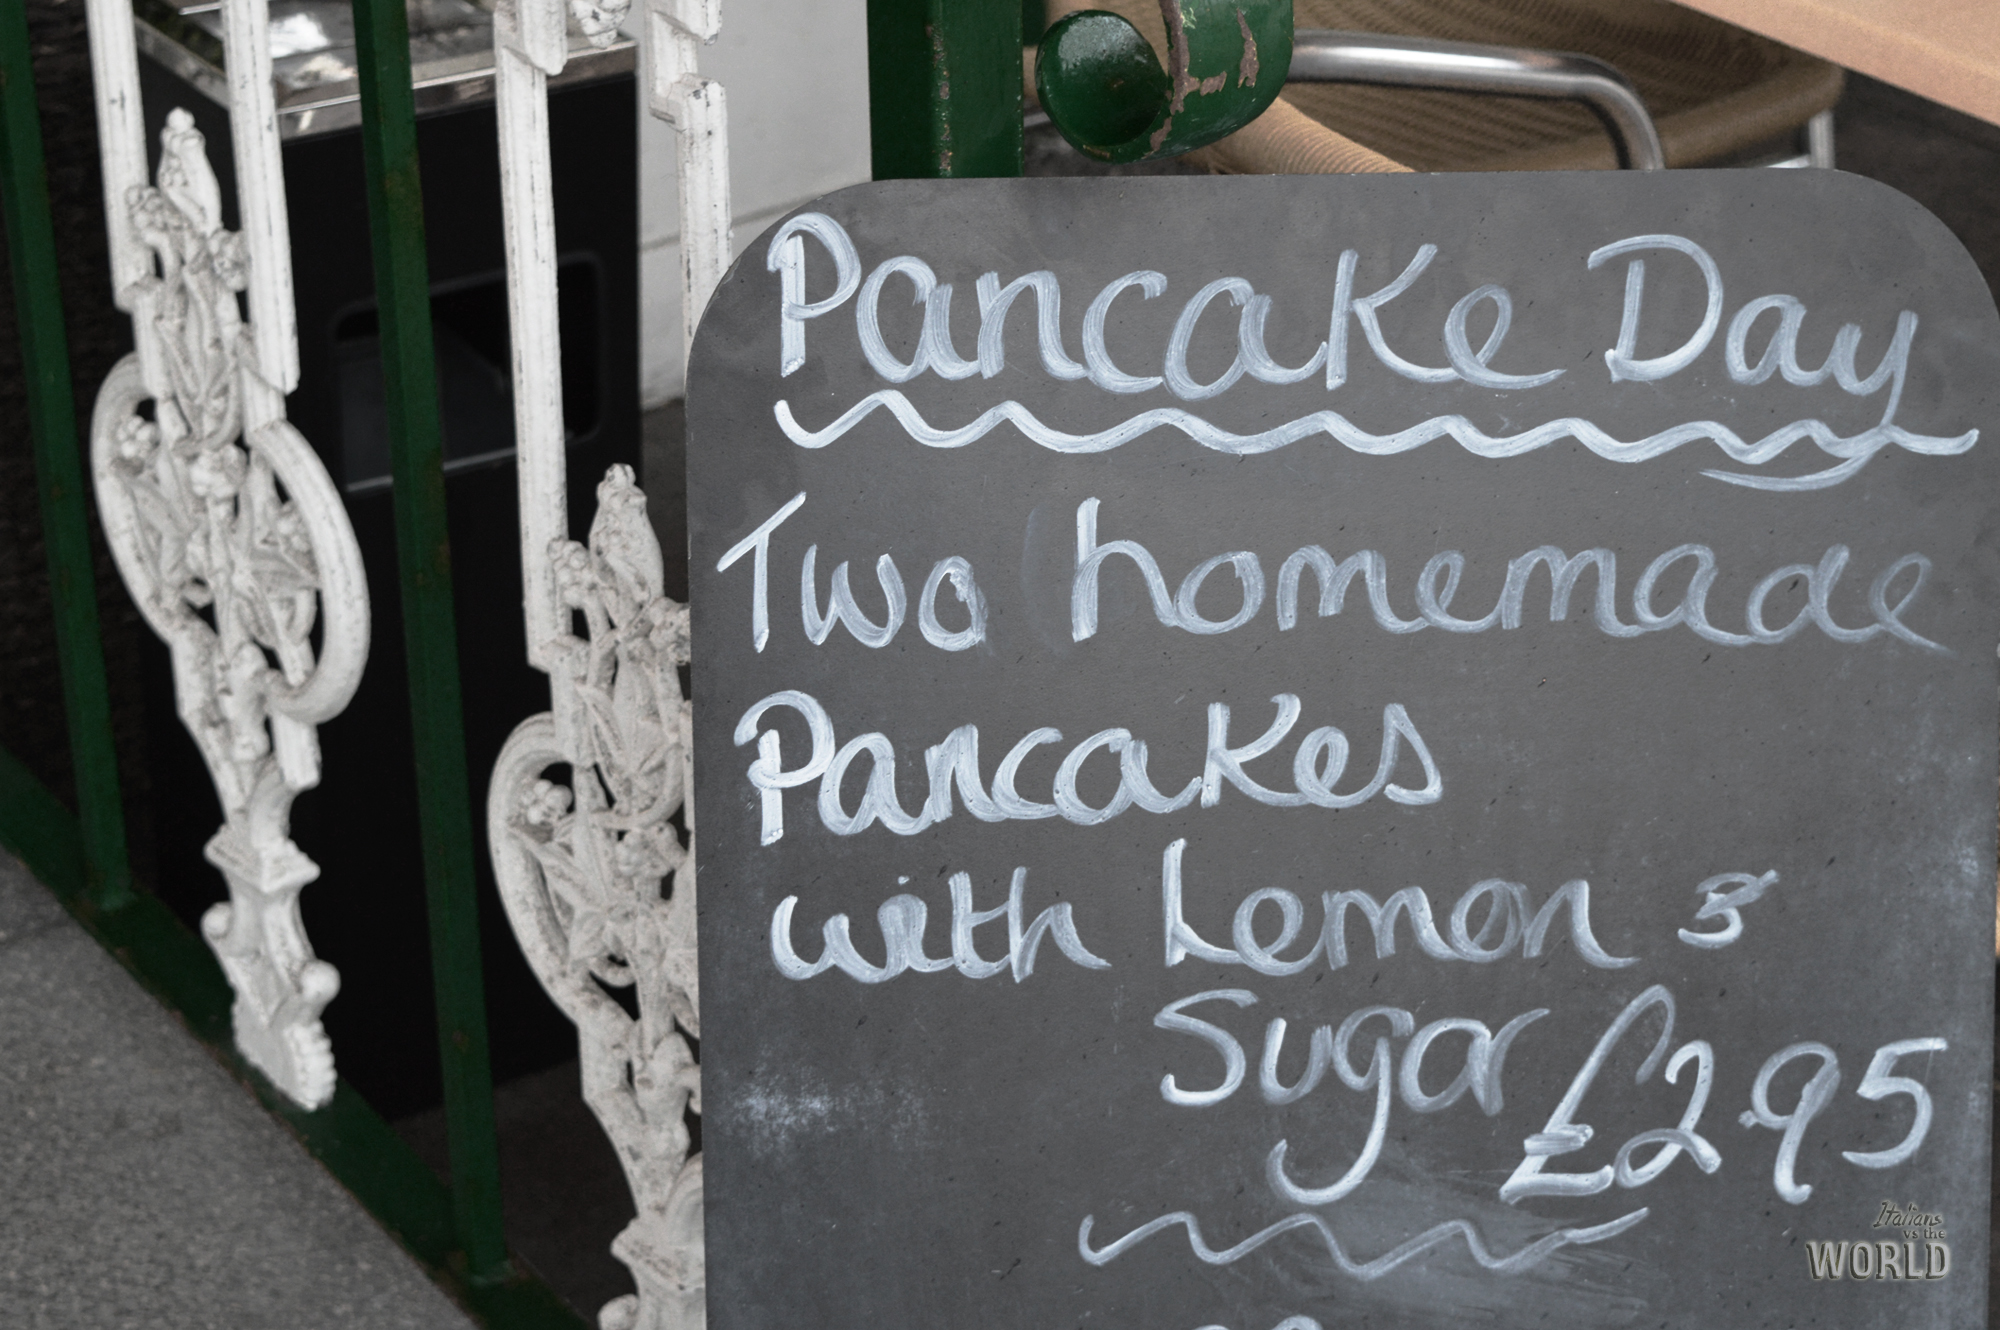 Pancake Day
Two homemade
Pancakes
with Lemon &
Sugar £2 95
Italians
vs the
WORLD